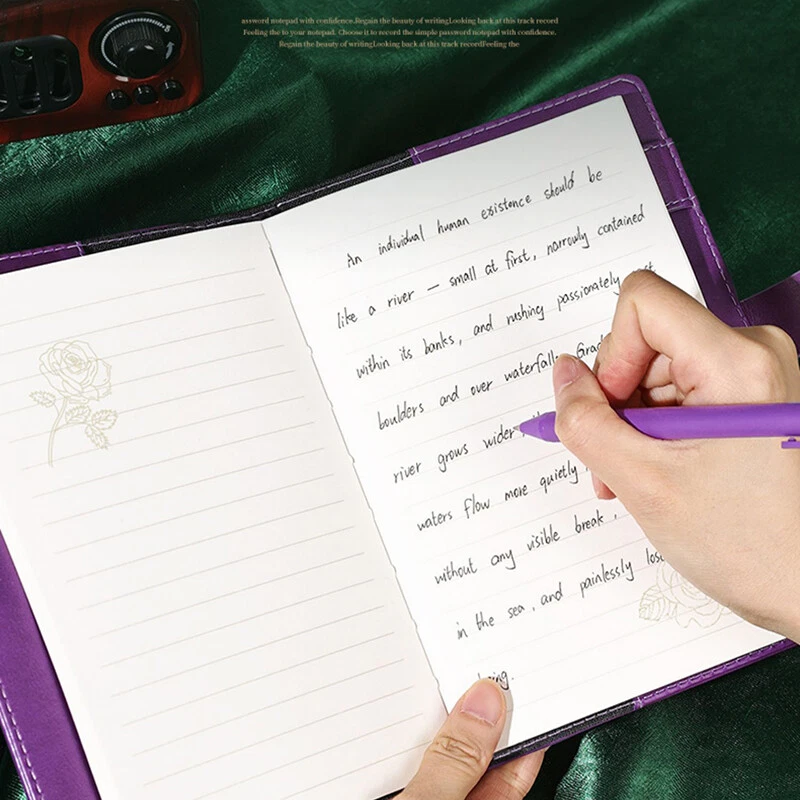 assword notepad with confidence.Regain the beauty of writingLooking back at this track record
Feeling the to your notepad. Choose it to record the simple password notepad with confidence.
Regain the beauty of writingLooking back at this track recordFeeling the
An individual human existence should be
like a river — small at first, narrowly contained
within its banks, and rushing passionately
boulders and over waterfalls. Grad
river grows wider
waters flow more quietly
without any visible break,
in the sea, and painlessly lose
being.